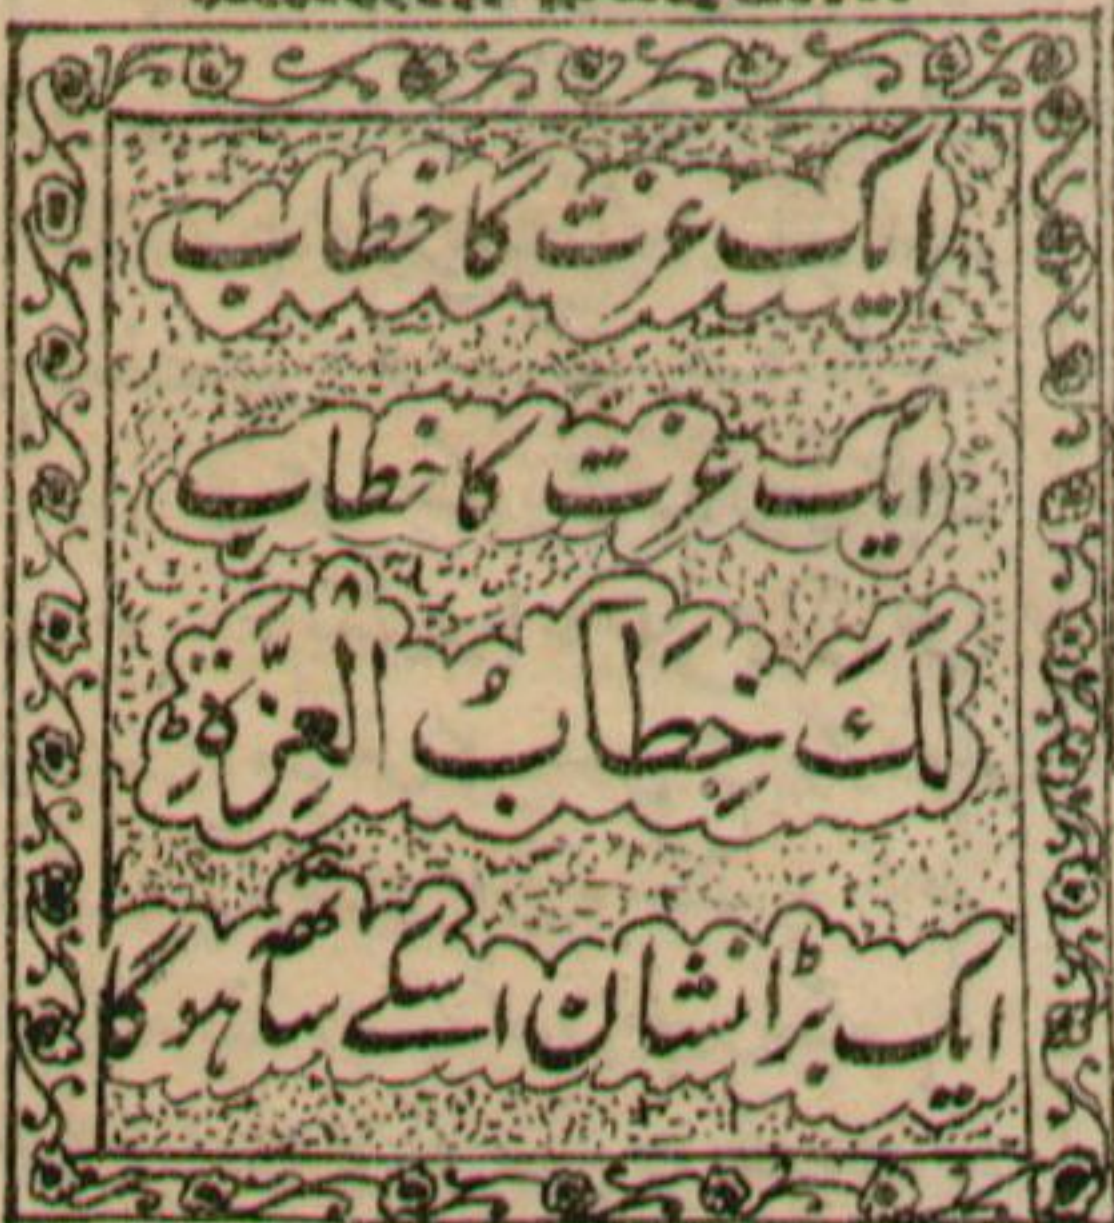 ایک عزت کا خطاب
ایک عزت کا خطاب
لَكَ خِطَابُ الْعِزَّةِ
ایک بڑا نشان اسکے ساتھ ہوگا